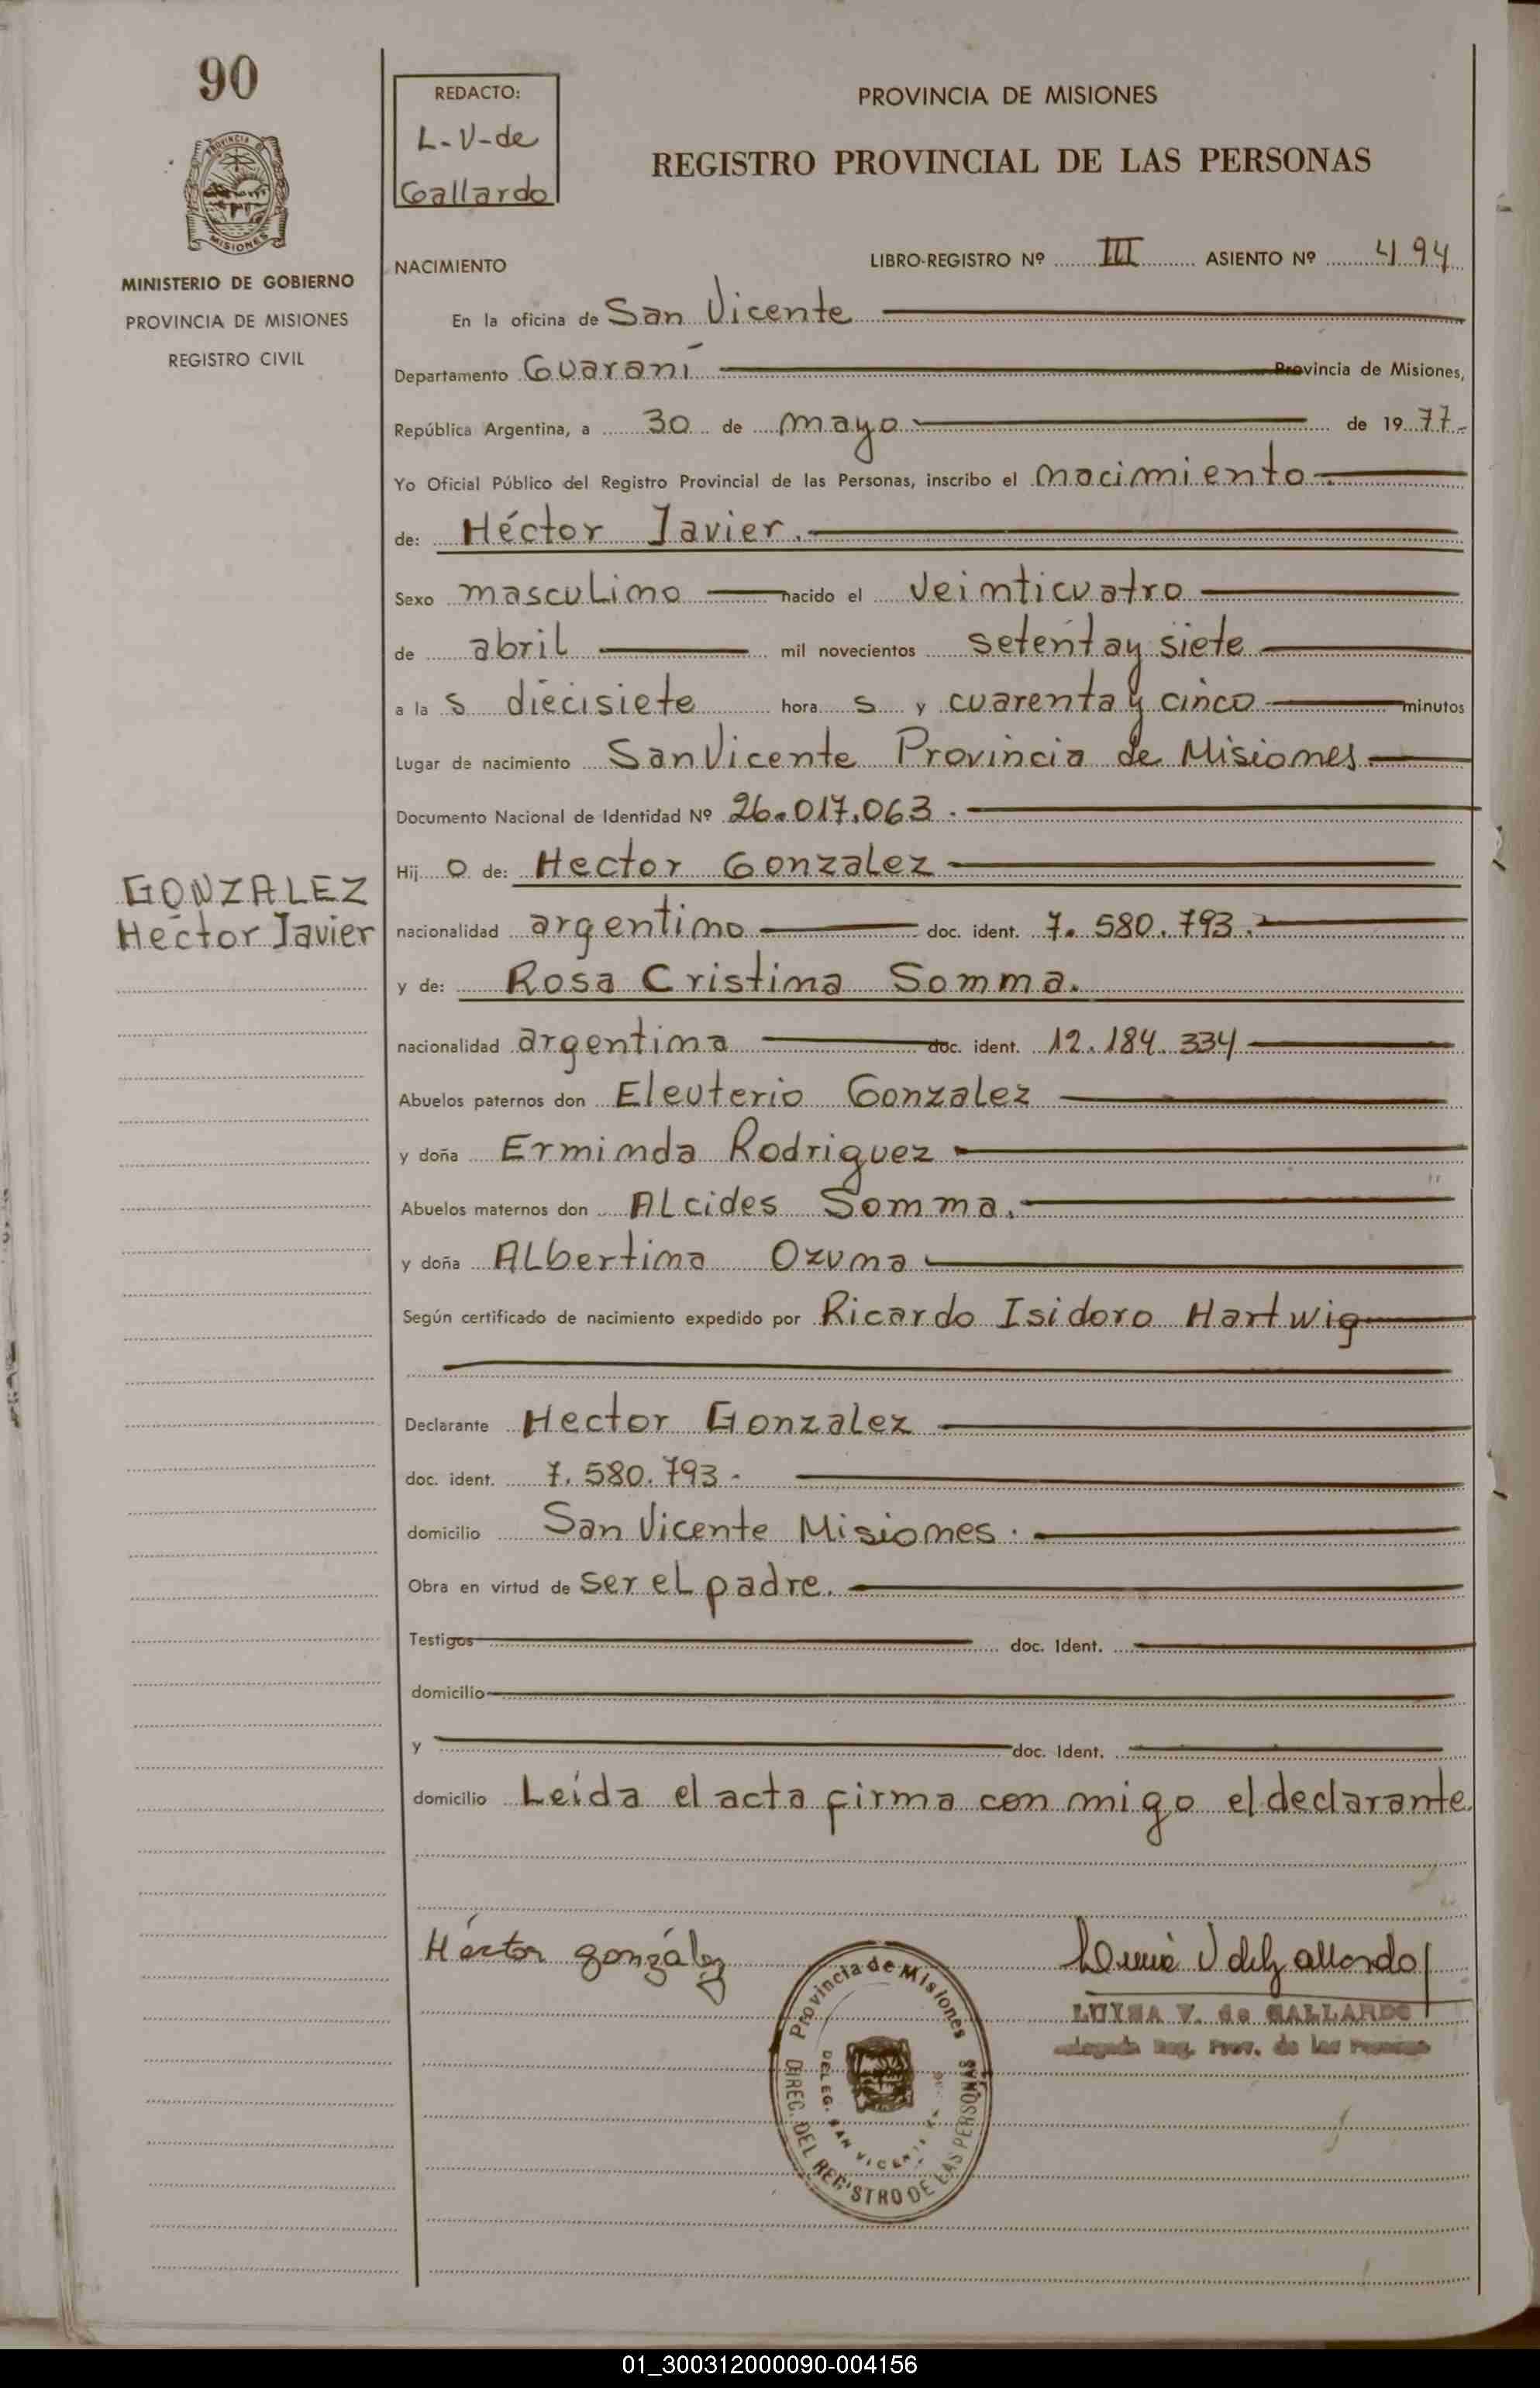 90
REDACTO:
L-V-de
Gallardo
PROVINCIA DE MISIONES
REGISTRO PROVINCIAL DE LAS PERSONAS
PROVINCIA
MISIONES
MINISTERIO DE GOBIERNO
PROVINCIA DE MISIONES
REGISTRO CIVIL
NACIMIENTO
LIBRO-REGISTRO Nº III ASIENTO Nº 494
En la oficina de San Vicente
Departamento Guaraní Provincia de Misiones,
República Argentina, a 30 de mayo de 1977.-
Yo Oficial Público del Registro Provincial de las Personas, inscribo el nacimiento
de: Héctor Javier.
Sexo masculino nacido el veinticuatro
de abril mil novecientos setenta y siete
a la s diecisiete hora s y cuarenta y cinco minutos
Lugar de nacimiento San Vicente Provincia de Misiones
Documento Nacional de Identidad Nº 26.017.063.
Hij o de: Hector Gonzalez
GONZALEZ
Héctor Javier
nacionalidad argentino doc. ident. 7.580.793.
y de: Rosa Cristina Somma.
nacionalidad argentina doc. ident. 12.184.334
Abuelos paternos don Eleuterio Gonzalez
y doña Erminda Rodriguez
Abuelos maternos don Alcides Somma.
y doña Albertina Ozuna
Según certificado de nacimiento expedido por Ricardo Isidoro Hartwig
Declarante Hector Gonzalez
doc. ident. 7.580.793-
domicilio San Vicente Misiones.
Obra en virtud de ser el padre.
Testigos doc. Ident.
domicilio
y doc. Ident.
domicilio Leída el acta firma con migo el declarante.
Héctor gonzález
Luisa V de Gallardo
LUISA V. de GALLARDO
Delegada Reg. Prov. de las Personas
Provincia de Misiones
DELEG. SAN VICENTE
DIREC. DEL REGISTRO DE LAS PERSONAS
01_300312000090-004156